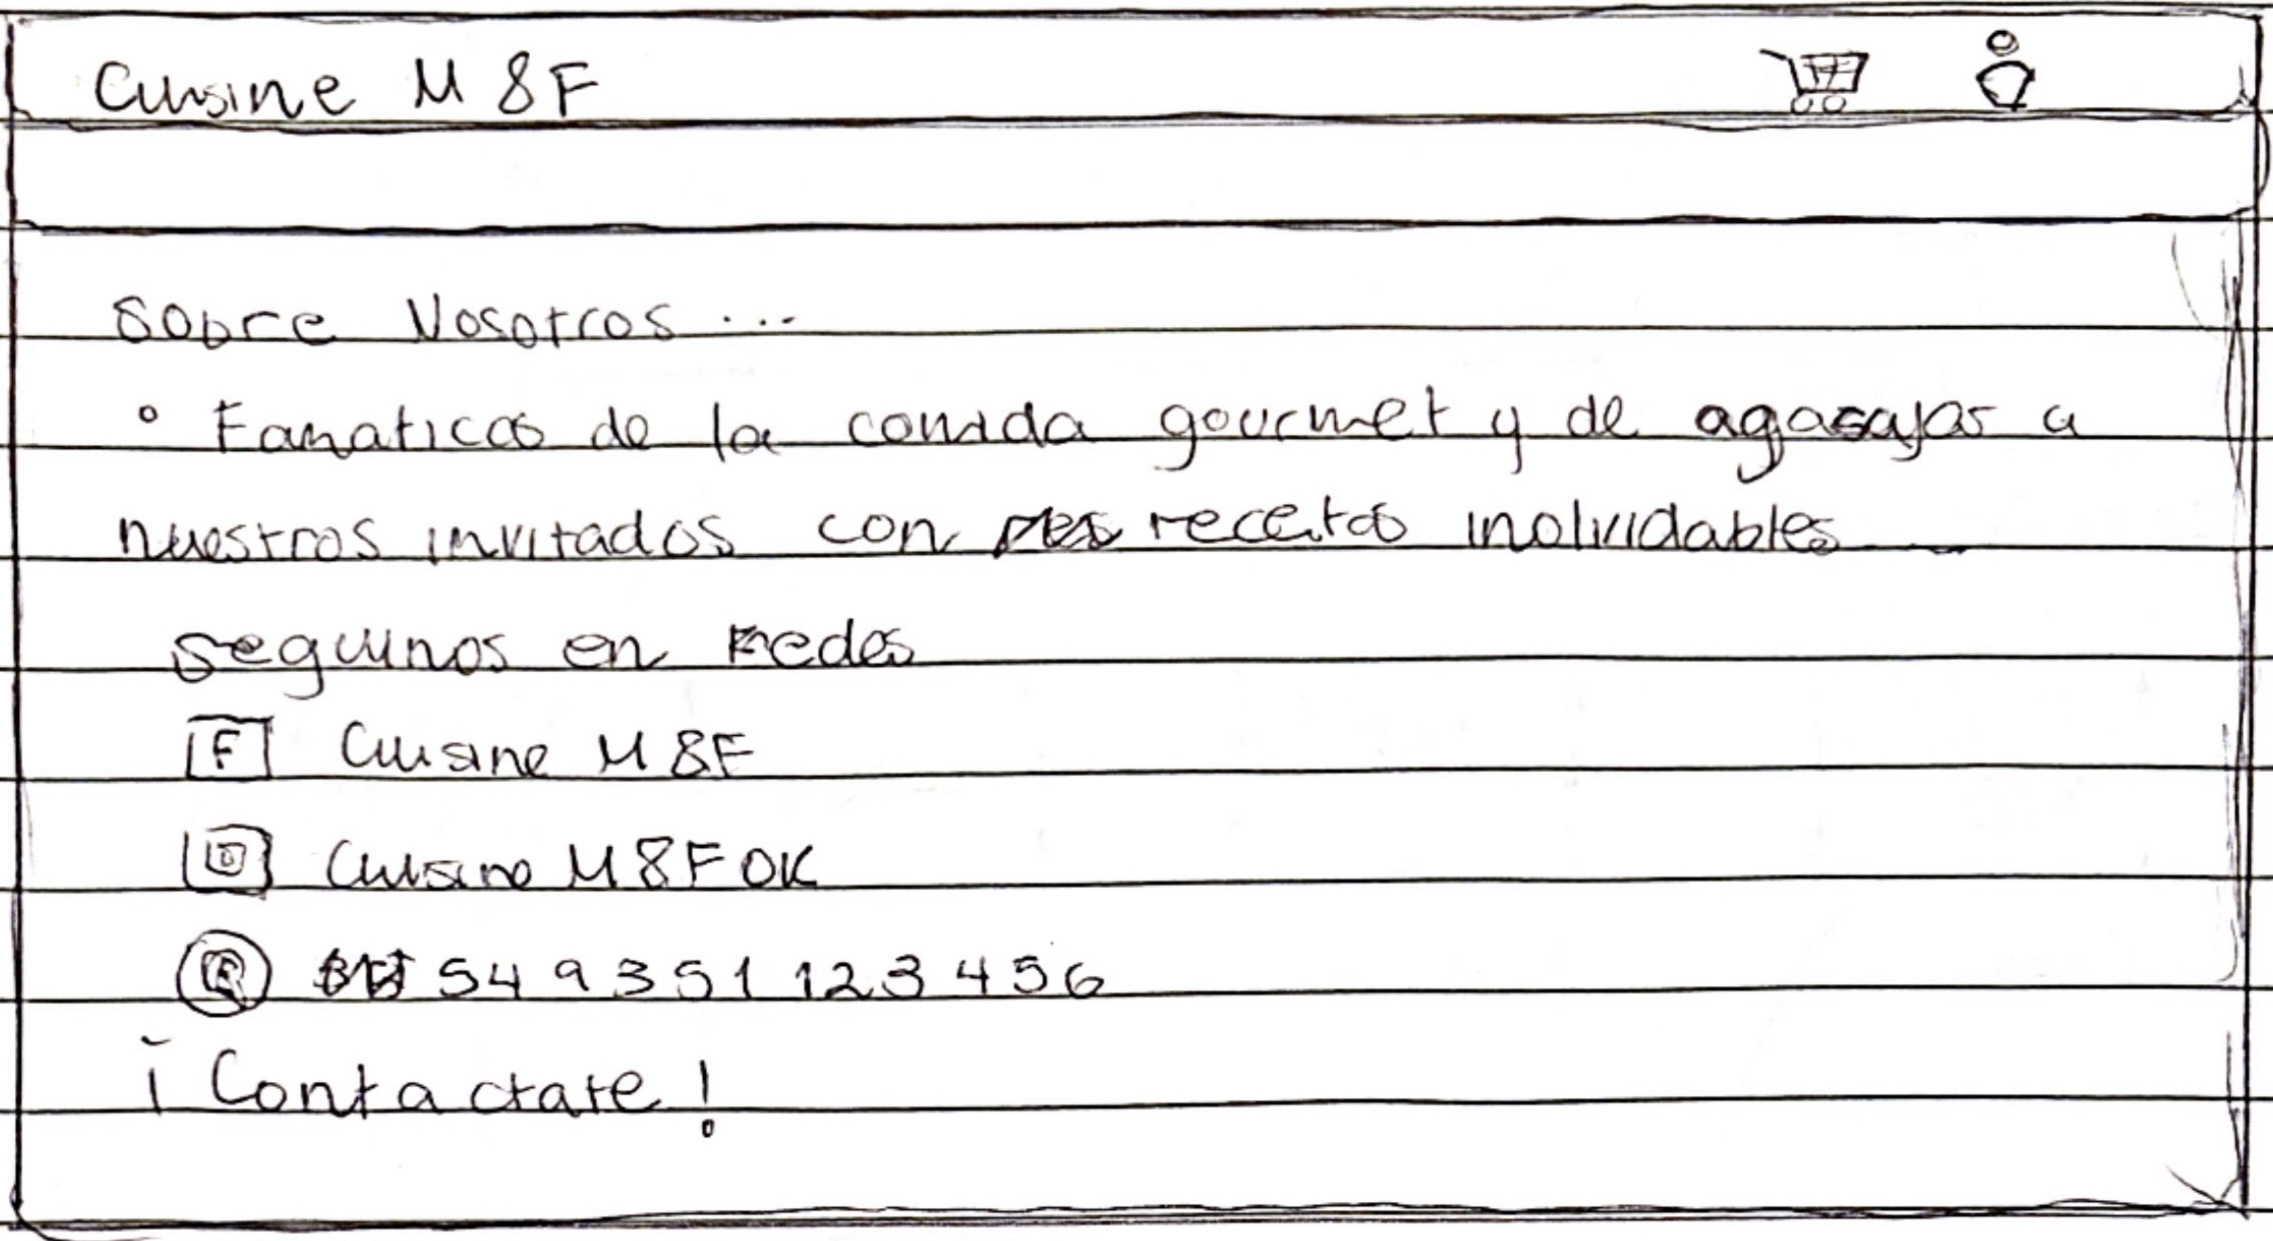 Cuisine M&F
Sobre Nosotros ...
° Fanaticos de la comida gourmet y de agasajar a
nuestros invitados con recetas inolvidables
seguinos en redes
F Cuisine M&F
Cuisine M&F OK
549351123456
¡Contactate!